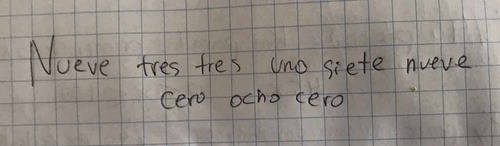 Nueve tres tres uno siete nueve
cero ocho cero